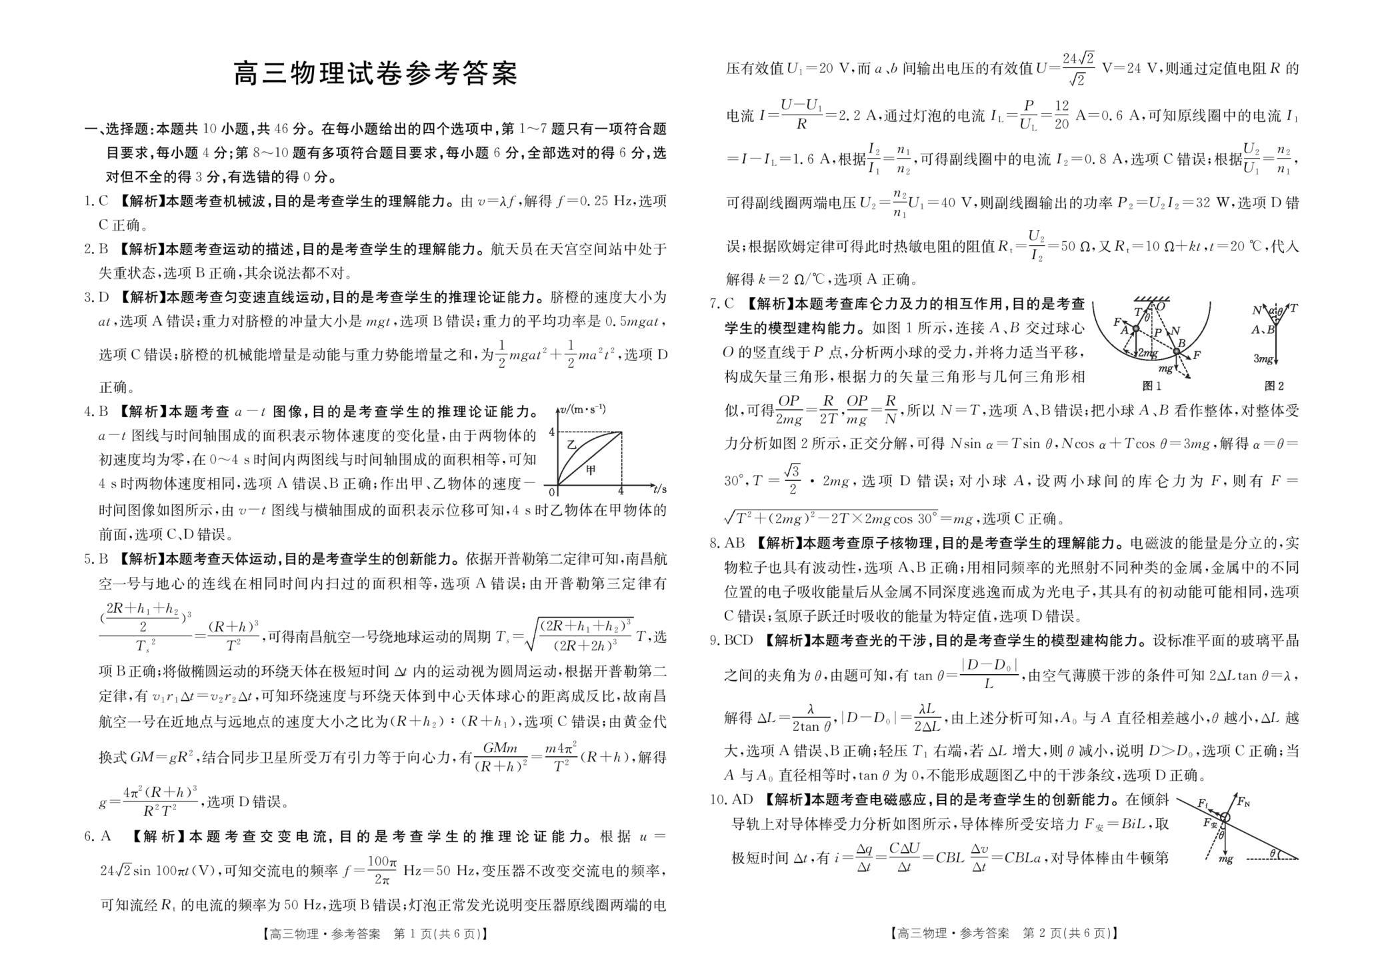 高三物理试卷参考答案
一、选择题:本题共 10 小题,共 46 分。在每小题给出的四个选项中,第 1～7 题只有一项符合题
目要求,每小题 4 分;第 8～10 题有多项符合题目要求,每小题 6 分,全部选对的得 6 分,选
对但不全的得 3 分,有选错的得 0 分。
1. C 【解析】本题考查机械波,目的是考查学生的理解能力。由 v=λf,解得 f=0.25 Hz,选项
C 正确。
2. B 【解析】本题考查运动的描述,目的是考查学生的理解能力。航天员在天宫空间站中处于
失重状态,选项 B 正确,其余说法都不对。
3. D 【解析】本题考查匀变速直线运动,目的是考查学生的推理论证能力。脐橙的速度大小为
at,选项 A 错误;重力对脐橙的冲量大小是 mgt,选项 B 错误;重力的平均功率是 0.5mgat,
选项 C 错误;脐橙的机械能增量是动能与重力势能增量之和,为 1/2 mgat²+1/2 ma²t²,选项 D
正确。
4. B 【解析】本题考查 a－t 图像,目的是考查学生的推理论证能力。
a－t 图线与时间轴围成的面积表示物体速度的变化量,由于两物体的
初速度均为零,在 0～4 s 时间内两图线与时间轴围成的面积相等,可知
4 s 时两物体速度相同,选项 A 错误、B 正确;作出甲、乙物体的速度－
时间图像如图所示,由 v－t 图线与横轴围成的面积表示位移可知,4 s 时乙物体在甲物体的
前面,选项 C、D 错误。
v/(m·s⁻¹)
4
乙
甲
0
4
t/s
5. B 【解析】本题考查天体运动,目的是考查学生的创新能力。依据开普勒第二定律可知,南昌航
空一号与地心的连线在相同时间内扫过的面积相等,选项 A 错误;由开普勒第三定律有
((2R+h₁+h₂)/2)³/Tₛ²=(R+h)³/T²,可得南昌航空一号绕地球运动的周期 Tₛ=√((2R+h₁+h₂)³/(2R+2h)³) T,选
项 B 正确;将做椭圆运动的环绕天体在极短时间 Δt 内的运动视为圆周运动,根据开普勒第二
定律,有 v₁r₁Δt=v₂r₂Δt,可知环绕速度与环绕天体到中心天体球心的距离成反比,故南昌
航空一号在近地点与远地点的速度大小之比为(R+h₂)∶(R+h₁),选项 C 错误;由黄金代
换式 GM=gR²,结合同步卫星所受万有引力等于向心力,有 GMm/(R+h)²=m4π²/T²(R+h),解得
g=4π²(R+h)³/R²T²,选项 D 错误。
6. A 【解析】本题考查交变电流,目的是考查学生的推理论证能力。根据 u=
24√2 sin 100πt(V),可知交流电的频率 f=100π/2π Hz=50 Hz,变压器不改变交流电的频率,
可知流经 Rₜ 的电流的频率为 50 Hz,选项 B 错误;灯泡正常发光说明变压器原线圈两端的电
【高三物理·参考答案 第 1 页(共 6 页)】
压有效值 U₁=20 V,而 a、b 间输出电压的有效值 U=24√2/√2 V=24 V,则通过定值电阻 R 的
电流 I=(U－U₁)/R=2.2 A,通过灯泡的电流 I_L=P/U_L=12/20 A=0.6 A,可知原线圈中的电流 I₁
=I－I_L=1.6 A,根据 I₂/I₁=n₁/n₂,可得副线圈中的电流 I₂=0.8 A,选项 C 错误;根据 U₂/U₁=n₂/n₁,
可得副线圈两端电压 U₂=n₂/n₁ U₁=40 V,则副线圈输出的功率 P₂=U₂I₂=32 W,选项 D 错
误;根据欧姆定律可得此时热敏电阻的阻值 Rₜ=U₂/I₂=50 Ω,又 Rₜ=10 Ω+kt,t=20 ℃,代入
解得 k=2 Ω/℃,选项 A 正确。
7. C 【解析】本题考查库仑力及力的相互作用,目的是考查
学生的模型建构能力。如图 1 所示,连接 A、B 交过球心
O 的竖直线于 P 点,分析两小球的受力,并将力适当平移,
构成矢量三角形,根据力的矢量三角形与几何三角形相
O
T
θ
F
A
P
N
B
2mg
F
mg
图 1
N
α
θ
T
A、B
3mg
图 2
似,可得 OP/2mg=R/2T,OP/mg=R/N,所以 N=T,选项 A、B 错误;把小球 A、B 看作整体,对整体受
力分析如图 2 所示,正交分解,可得 Nsin α=Tsin θ,Ncos α+Tcos θ=3mg,解得 α=θ=
30°,T=√3/2·2mg,选项 D 错误;对小球 A,设两小球间的库仑力为 F,则有 F=
√(T²+(2mg)²－2T×2mgcos 30°)=mg,选项 C 正确。
8. AB 【解析】本题考查原子核物理,目的是考查学生的理解能力。电磁波的能量是分立的,实
物粒子也具有波动性,选项 A、B 正确;用相同频率的光照射不同种类的金属,金属中的不同
位置的电子吸收能量后从金属不同深度逃逸而成为光电子,其具有的初动能可能相同,选项
C 错误;氢原子跃迁时吸收的能量为特定值,选项 D 错误。
9. BCD 【解析】本题考查光的干涉,目的是考查学生的模型建构能力。设标准平面的玻璃平晶
之间的夹角为 θ,由题可知,有 tan θ=|D－D₀|/L,由空气薄膜干涉的条件可知 2ΔLtan θ=λ,
解得 ΔL=λ/2tan θ,|D－D₀|=λL/2ΔL,由上述分析可知,A₀ 与 A 直径相差越小,θ 越小,ΔL 越
大,选项 A 错误、B 正确;轻压 T₁ 右端,若 ΔL 增大,则 θ 减小,说明 D>D₀,选项 C 正确;当
A 与 A₀ 直径相等时,tan θ 为 0,不能形成题图乙中的干涉条纹,选项 D 正确。
10. AD 【解析】本题考查电磁感应,目的是考查学生的创新能力。在倾斜
导轨上对导体棒受力分析如图所示,导体棒所受安培力 F安=BiL,取
极短时间 Δt,有 i=Δq/Δt=CΔU/Δt=CBL Δv/Δt=CBLa,对导体棒由牛顿第
F_N
F安
θ
mg
θ
【高三物理·参考答案 第 2 页(共 6 页)】